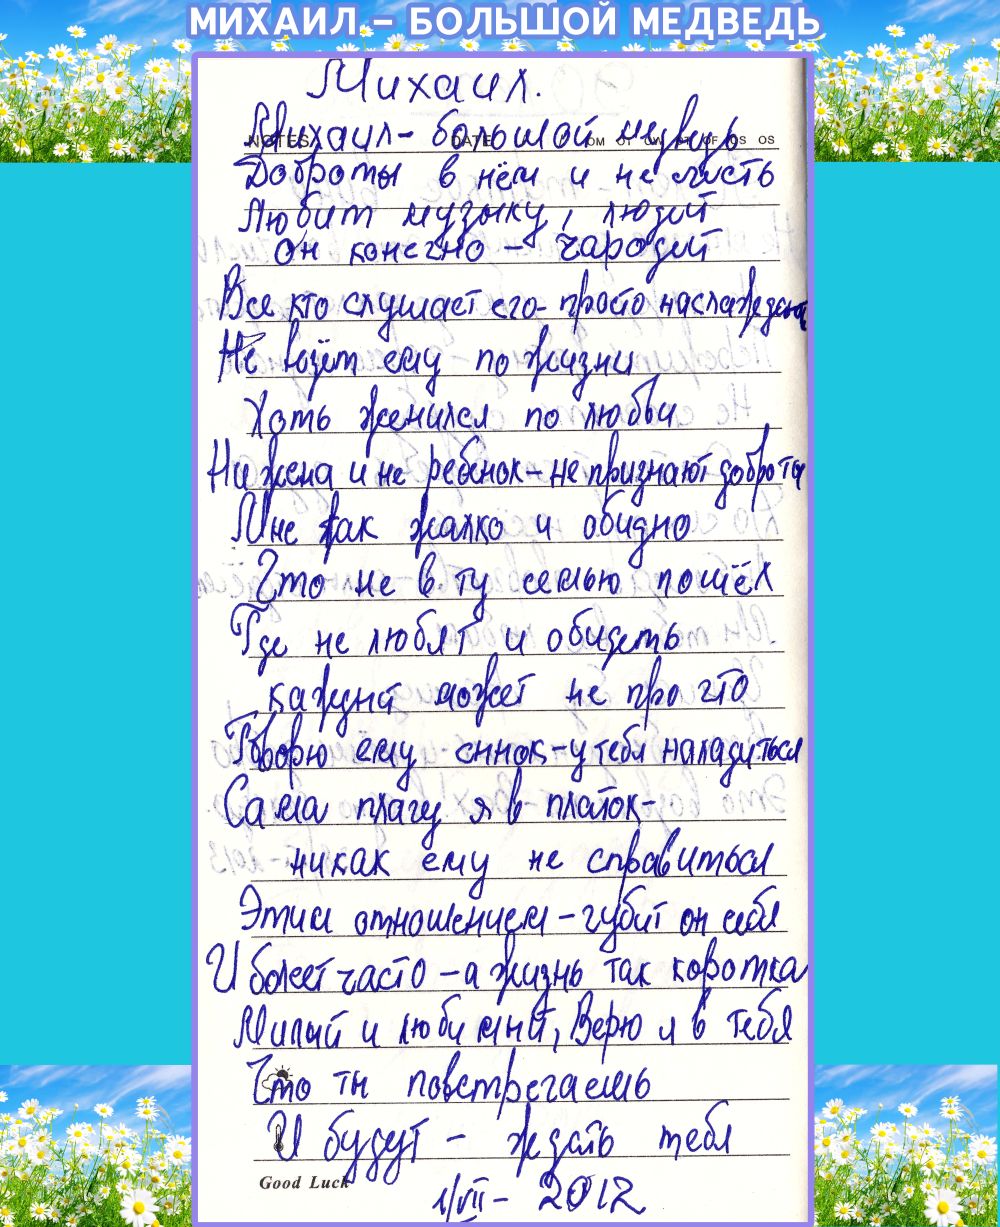 МИХАИЛ. – БОЛЬШОЙ МЕДВЕДЬ
Михаил.
NOTES DATE
Михаил – большой медведь
Доброты в нём и не счесть
Любит музыку, людей
Он конечно – чародей
Все кто слушает его – просто наслаждение
Не везёт ему по жизни
Хоть женился по любви
Ни жена и не ребёнок – не признают доброты
Мне так жалко и обидно
Что не в ту семью пошёл
Где не любят и обидеть
каждый может не про что
Говорю ему сынок – у тебя наладиться
Сама плачу я в платок –
никак ему не справиться
Этим отношением – губит он себя
И болеет часто – а жизнь так коротка
Милый и любимый, Верю я в тебя
Что ты повстречаешь
И будут – ждать тебя
Good Luck
1/VII – 2012